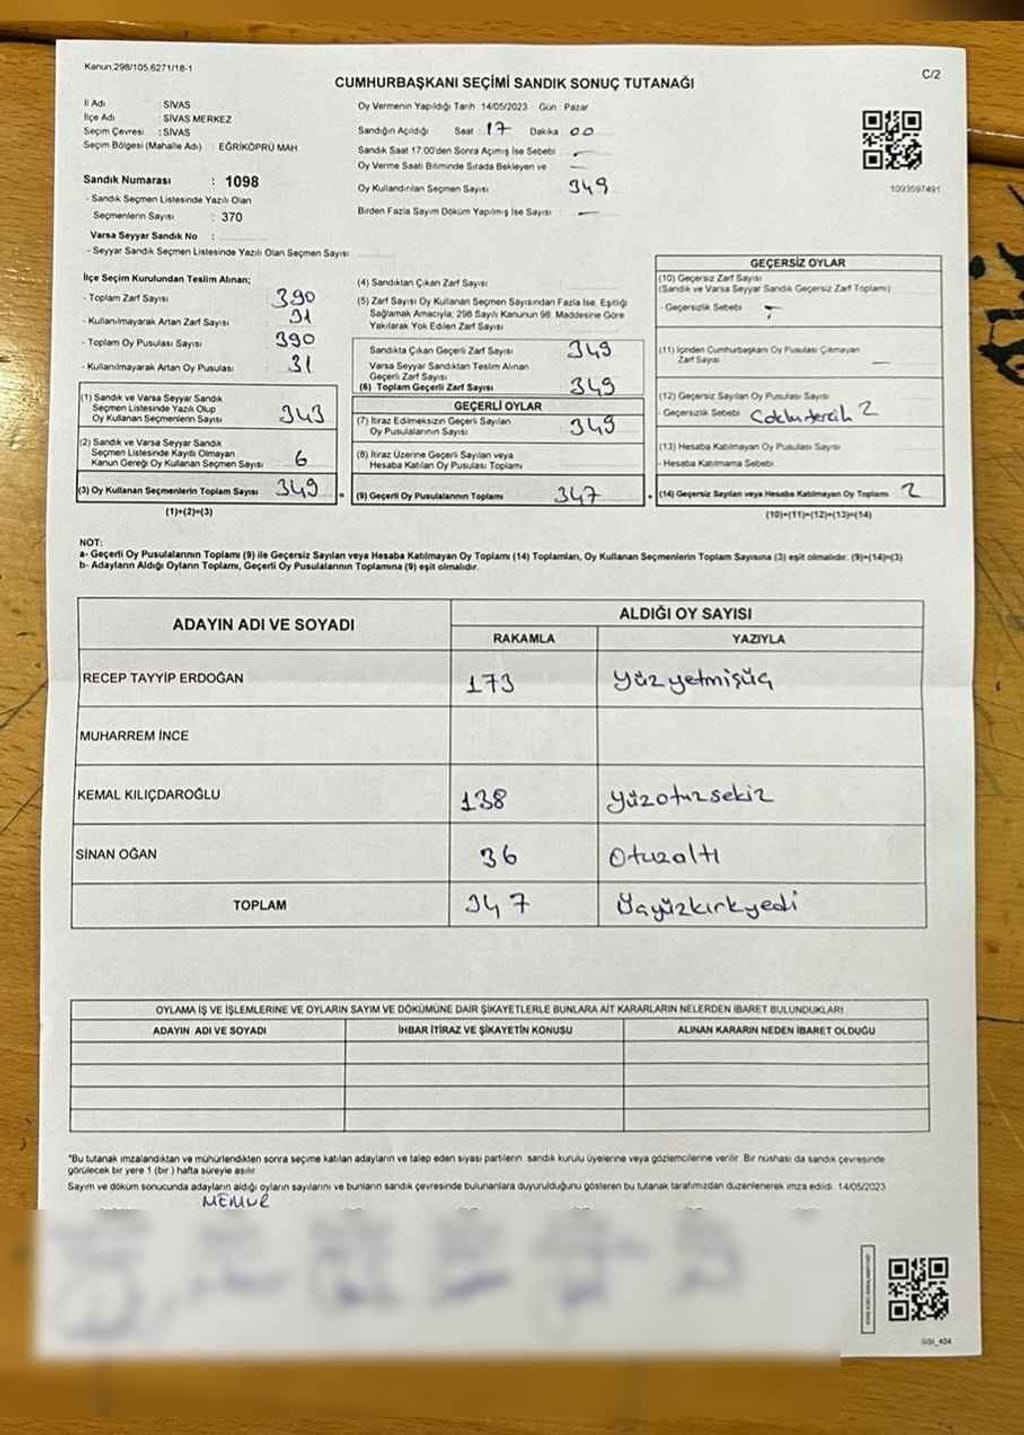 Kanun.298/105,6271/18-1
C/2
CUMHURBAŞKANI SEÇİMİ SANDIK SONUÇ TUTANAĞI
İl Adı SİVAS
İlçe Adı : SİVAS MERKEZ
Seçim Çevresi : SİVAS
Seçim Bölgesi (Mahalle Adı) : EĞRİKÖPRÜ MAH
Sandık Numarası : 1098
- Sandık Seçmen Listesinde Yazılı Olan
Seçmenlerin Sayısı : 370
Varsa Seyyar Sandık No :
- Seyyar Sandık Seçmen Listesinde Yazılı Olan Seçmen Sayısı
Oy Vermenin Yapıldığı Tarih 14/05/2023 Gün : Pazar
Sandığın Açıldığı Saat 17 Dakika 00
Sandık Saat 17.00'den Sonra Açımış İse Sebebi -
Oy Verme Saati Bitiminde Sırada Bekleyen ve -
Oy Kullandırılan Seçmen Sayısı 349
Birden Fazla Sayım Döküm Yapılmış İse Sayısı -
1093597491
İlçe Seçim Kurulundan Teslim Alınan;
- Toplam Zarf Sayısı 390
- Kullanılmayarak Artan Zarf Sayısı 31
- Toplam Oy Pusulası Sayısı 390
- Kullanılmayarak Artan Oy Pusulası 31
(1) Sandık ve Varsa Seyyar Sandık
Seçmen Listesinde Yazılı Olup
Oy Kullanan Seçmenlerin Sayısı 343
(2) Sandık ve Varsa Seyyar Sandık
Seçmen Listesinde Kayıtlı Olmayan
Kanun Gereği Oy Kullanan Seçmen Sayısı 6
(3) Oy Kullanan Seçmenlerin Toplam Sayısı 349
(1)+(2)=(3)
(4) Sandıktan Çıkan Zarf Sayısı
(5) Zarf Sayısı Oy Kullanan Seçmen Sayısından Fazla İse, Eşitliği
Sağlamak Amacıyla, 298 Sayılı Kanunun 98. Maddesine Göre
Yakılarak Yok Edilen Zarf Sayısı
Sandıkta Çıkan Geçerli Zarf Sayısı 349
Varsa Seyyar Sandıktan Teslim Alınan
Geçerli Zarf Sayısı
(6) Toplam Geçerli Zarf Sayısı 349
GEÇERLİ OYLAR
(7) İtiraz Edilmeksizin Geçerli Sayılan
Oy Pusulalarının Sayısı 349
(8) İtiraz Üzerine Geçerli Sayılan veya
Hesaba Katılan Oy Pusulası Toplamı
(9) Geçerli Oy Pusulalarının Toplamı 347
GEÇERSİZ OYLAR
(10) Geçersiz Zarf Sayısı
(Sandık ve Varsa Seyyar Sandık Geçersiz Zarf Toplamı)
- Geçersizlik Sebebi -
(11) İçinden Cumhurbaşkanı Oy Pusulası Çıkmayan
Zarf Sayısı -
(12) Geçersiz Sayılan Oy Pusulası Sayısı
- Geçersizlik Sebebi Çoklu tercih 2
(13) Hesaba Katılmayan Oy Pusulası Sayısı
- Hesaba Katılmama Sebebi
(14) Geçersiz Sayılan veya Hesaba Katılmayan Oy Toplamı 2
(10)+(11)+(12)+(13)=(14)
NOT:
a- Geçerli Oy Pusulalarının Toplamı (9) ile Geçersiz Sayılan veya Hesaba Katılmayan Oy Toplamı (14) Toplamları, Oy Kullanan Seçmenlerin Toplam Sayısına (3) eşit olmalıdır. (9)+(14)=(3)
b- Adayların Aldığı Oyların Toplamı, Geçerli Oy Pusulalarının Toplamına (9) eşit olmalıdır.
ADAYIN ADI VE SOYADI
ALDIĞI OY SAYISI
RAKAMLA YAZIYLA
RECEP TAYYİP ERDOĞAN 173 Yüzyetmişüç
MUHARREM İNCE
KEMAL KILIÇDAROĞLU 138 yüzotuzsekiz
SİNAN OĞAN 36 Otuzaltı
TOPLAM 347 Üçyüzkırkyedi
OYLAMA İŞ VE İŞLEMLERİNE VE OYLARIN SAYIM VE DÖKÜMÜNE DAİR ŞİKAYETLERLE BUNLARA AİT KARARLARIN NELERDEN İBARET BULUNDUKLARI
ADAYIN ADI VE SOYADI İHBAR İTİRAZ VE ŞİKAYETİN KONUSU ALINAN KARARIN NEDEN İBARET OLDUĞU
*Bu tutanak imzalandıktan ve mühürlendikten sonra seçime katılan adayların ve talep eden siyasi partilerin sandık kurulu üyelerine veya gözlemcilerine verilir. Bir nüshası da sandık çevresinde
görülecek bir yere 1 (bir) hafta süreyle asılır
Sayım ve döküm sonucunda adayların aldığı oyların sayılarını ve bunların sandık çevresinde bulunanlara duyurulduğunu gösteren bu tutanak tarafımızdan düzenlenerek imza edildi. 14/05/2023
MEMUR
GSI_404